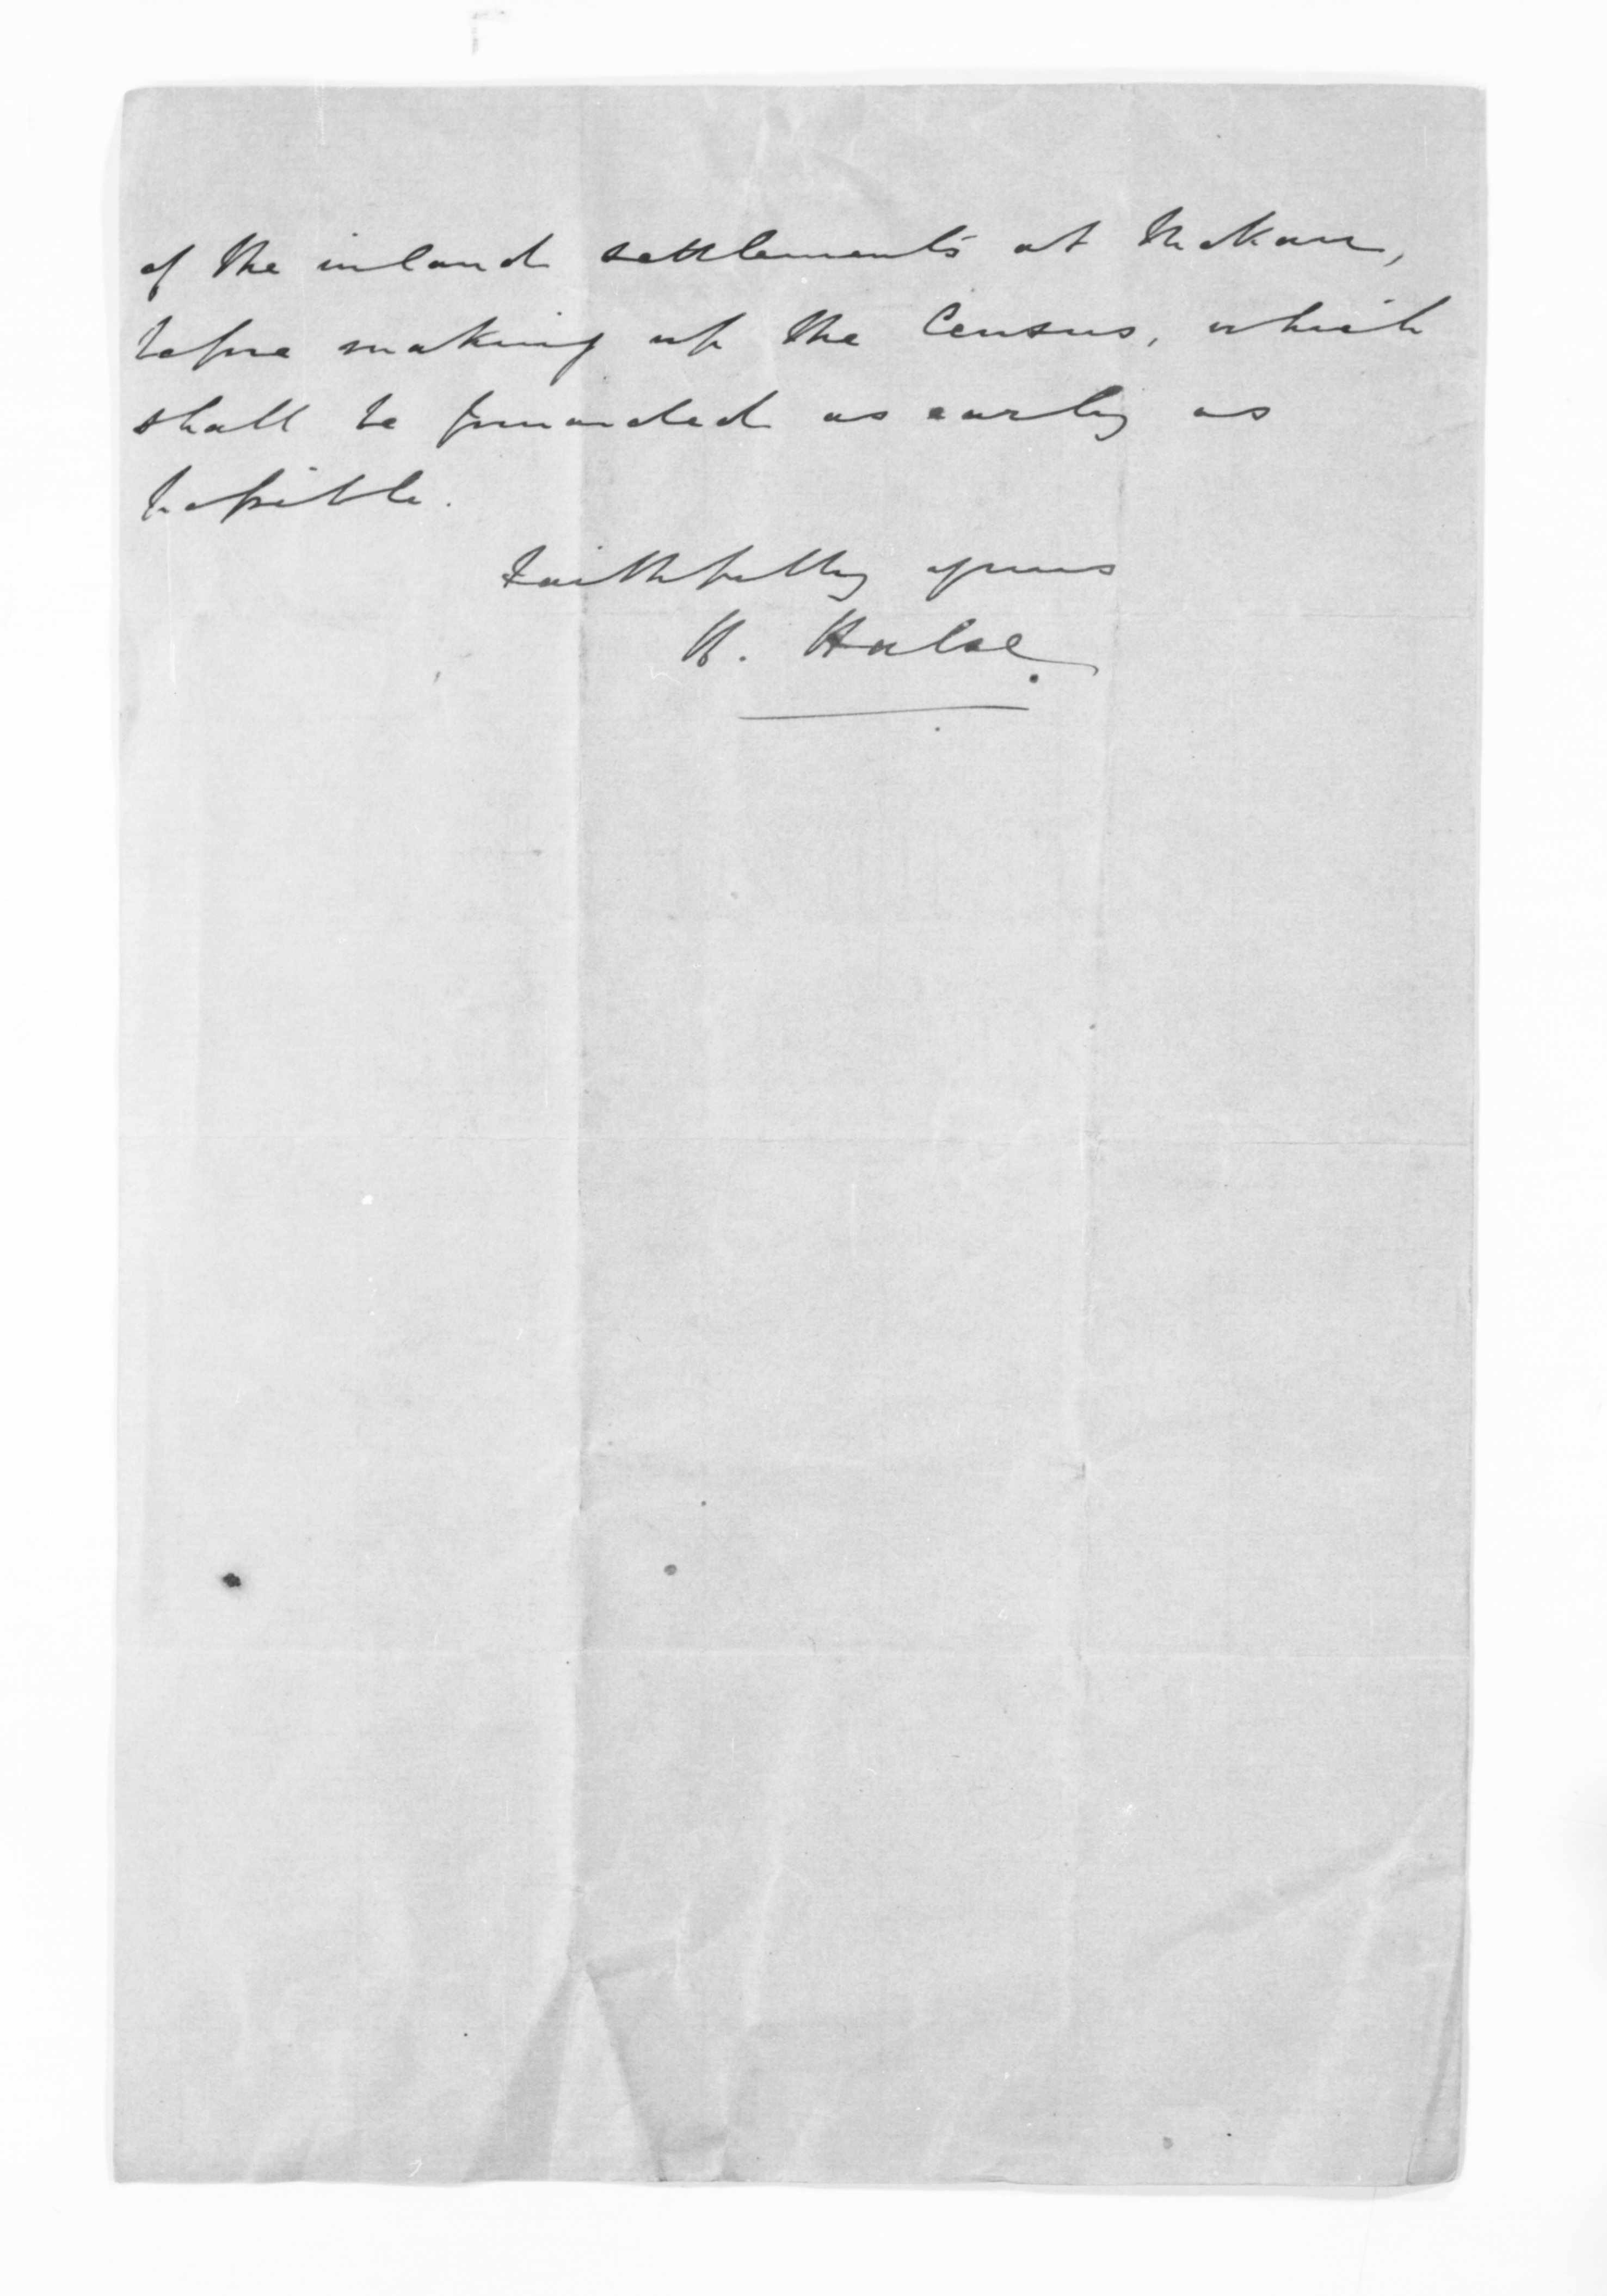 of the inland settlements at Mokau,
before making up the Census, which
shall be forwarded as early as
possible.
Faithfully yours
H. Halse